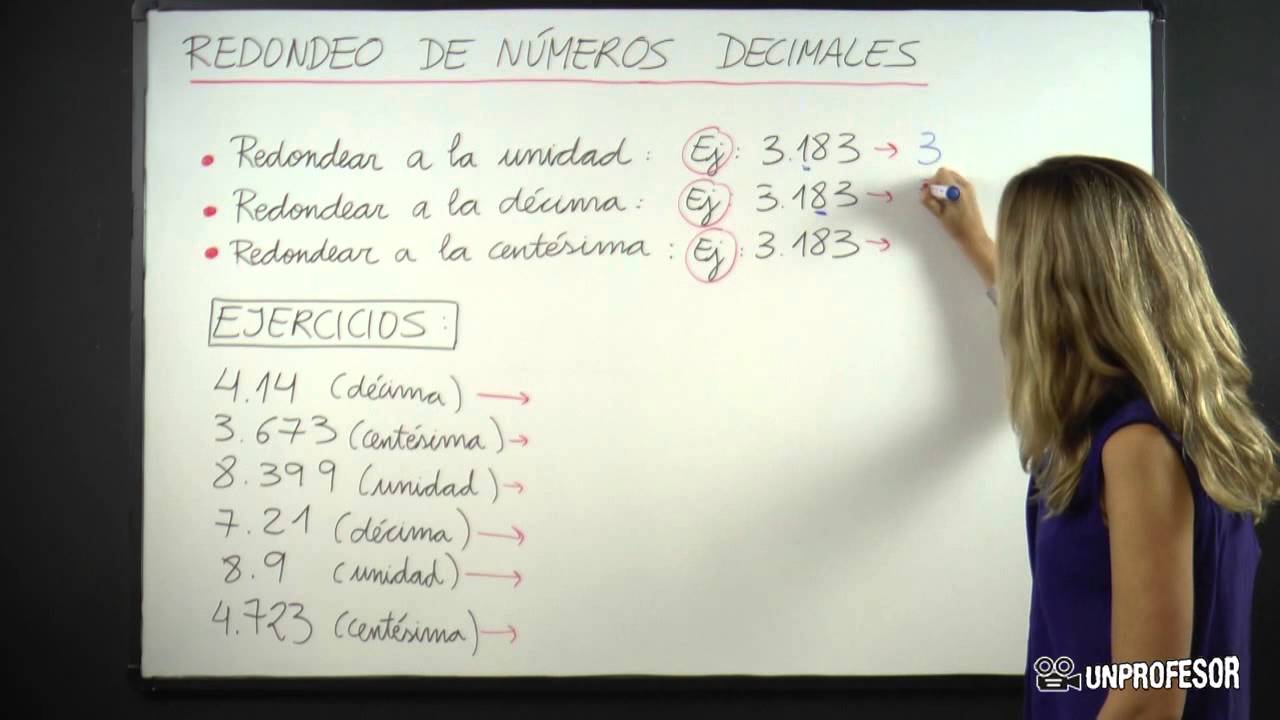 REDONDEO DE NÚMEROS DECIMALES
• Redondear a la unidad: Ej: 3.183 → 3
• Redondear a la décima: Ej: 3.183 →
• Redondear a la centésima: Ej: 3.183 →
EJERCICIOS:
4.14 (décima) →
3.673 (centésima) →
8.399 (unidad) →
7.21 (décima) →
8.9 (unidad) →
4.723 (centésima) →
UNPROFESOR